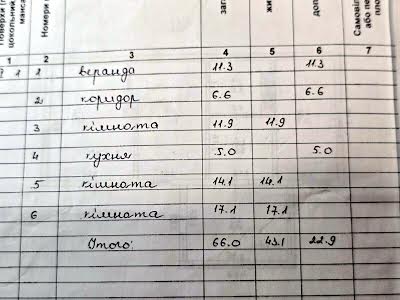 Поверхи
цокольний,
манса
Номери
заг
жи
доп
Самовіл
або пе
пло
1 2 3 4 5 6 7
1 1 веранда 11.3 11.3
2 коридор 6.6 6.6
3 кімната 11.9 11.9
4 кухня 5.0 5.0
5 кімната 14.1 14.1
6 кімната 17.1 17.1
Итого: 66.0 43.1 22.9